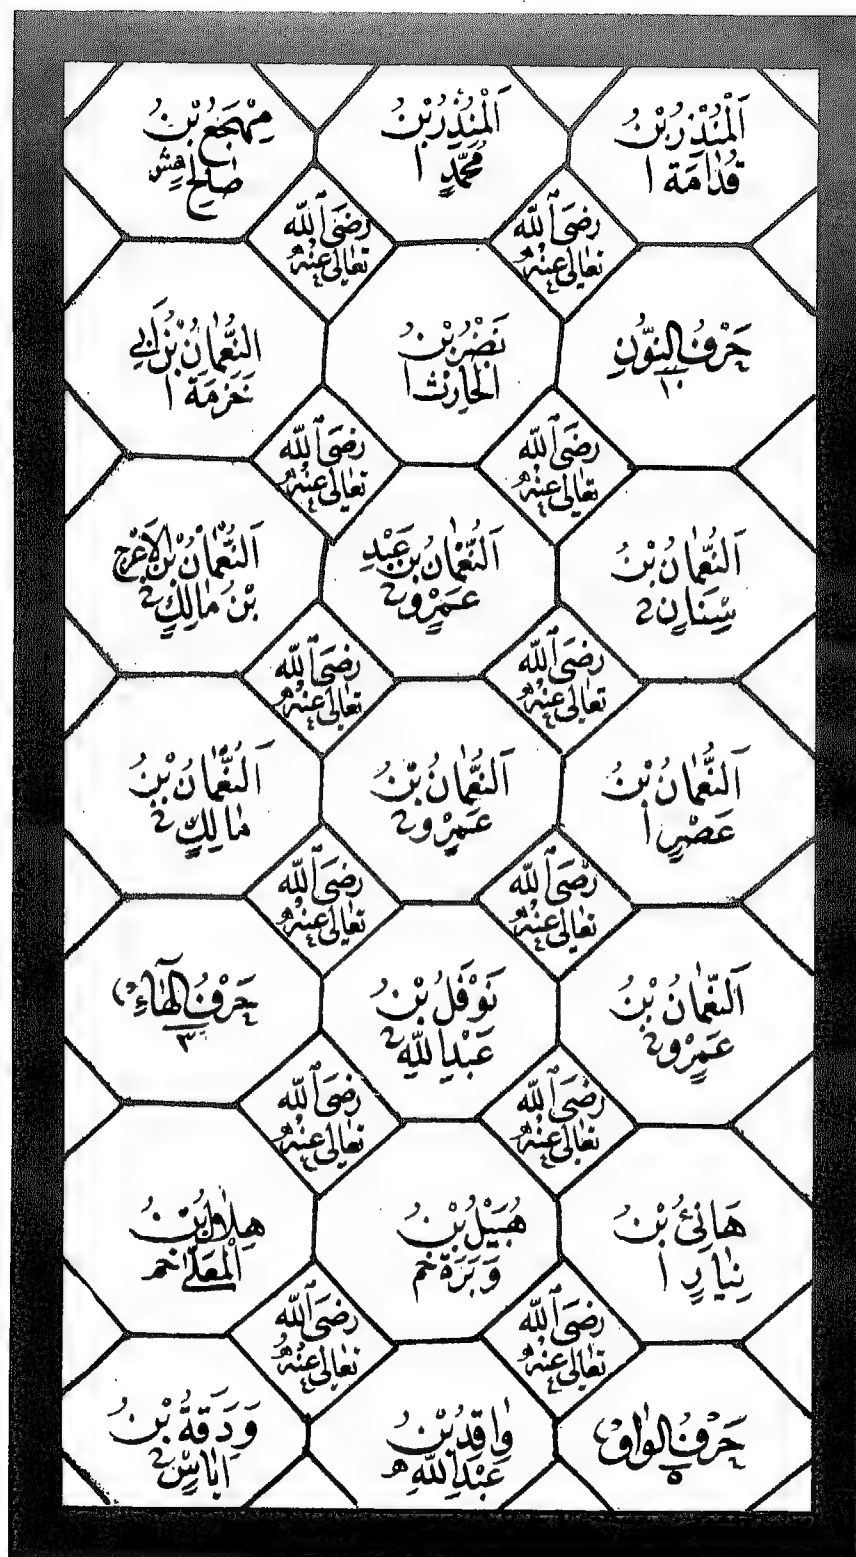 اَلْمُنْذِرُ بْنُ
قُدَامَةَ ا
اَلْمُنْذِرُ بْنُ
مُحَمَّدٍ ا
مِهْجَعُ بْنُ
صَالِحٍ هش
رَضِىَ ٱللّٰه
تَعَالٰى عَنْهُ
رَضِىَ ٱللّٰه
تَعَالٰى عَنْهُ
حَرْفُ النُّوْنِ
١٠
نَصْرُ بْنُ
الْحَارِثِ ا
النُّعْمَانُ بْنُ اَبِي
خَزْمَةَ ا
رَضِىَ ٱللّٰه
تَعَالٰى عَنْهُ
رَضِىَ ٱللّٰه
تَعَالٰى عَنْهُ
اَلنُّعْمَانُ بْنُ
سِنَانٍ خ
اَلنُّعْمَانُ بْنُ عَبْدِ
عَمْرٍو خ
اَلنُّعْمَانُ بْنُ الْاَعْرَجِ
بْنُ مَالِكٍ خ
رَضِىَ ٱللّٰه
تَعَالٰى عَنْهُ
رَضِىَ ٱللّٰه
تَعَالٰى عَنْهُ
اَلنُّعْمَانُ بْنُ
عَصْرٍ ا
اَلنُّعْمَانُ بْنُ
عَمْرٍو خ
اَلنُّعْمَانُ بْنُ
مَالِكٍ خ
رَضِىَ ٱللّٰه
تَعَالٰى عَنْهُ
رَضِىَ ٱللّٰه
تَعَالٰى عَنْهُ
اَلنُّعْمَانُ بْنُ
عَمْرٍو خ
نَوْفَلُ بْنُ
عَبْدِ اللّٰهِ خ
حَرْفُ الْهَاءِ
٣
رَضِىَ ٱللّٰه
تَعَالٰى عَنْهُ
رَضِىَ ٱللّٰه
تَعَالٰى عَنْهُ
هَانِئُ بْنُ
نِيَارٍ ا
هُبَيْلُ بْنُ
وَبَرَةَ خم
هِلَالُ بْنُ
الْمُعَلّٰى خم
رَضِىَ ٱللّٰه
تَعَالٰى عَنْهُ
رَضِىَ ٱللّٰه
تَعَالٰى عَنْهُ
حَرْفُ الْوَاوِ
٥
وَاقِدُ بْنُ
عَبْدِ اللّٰهِ ه
وَدَقَةُ بْنُ
اِيَاسٍ خ